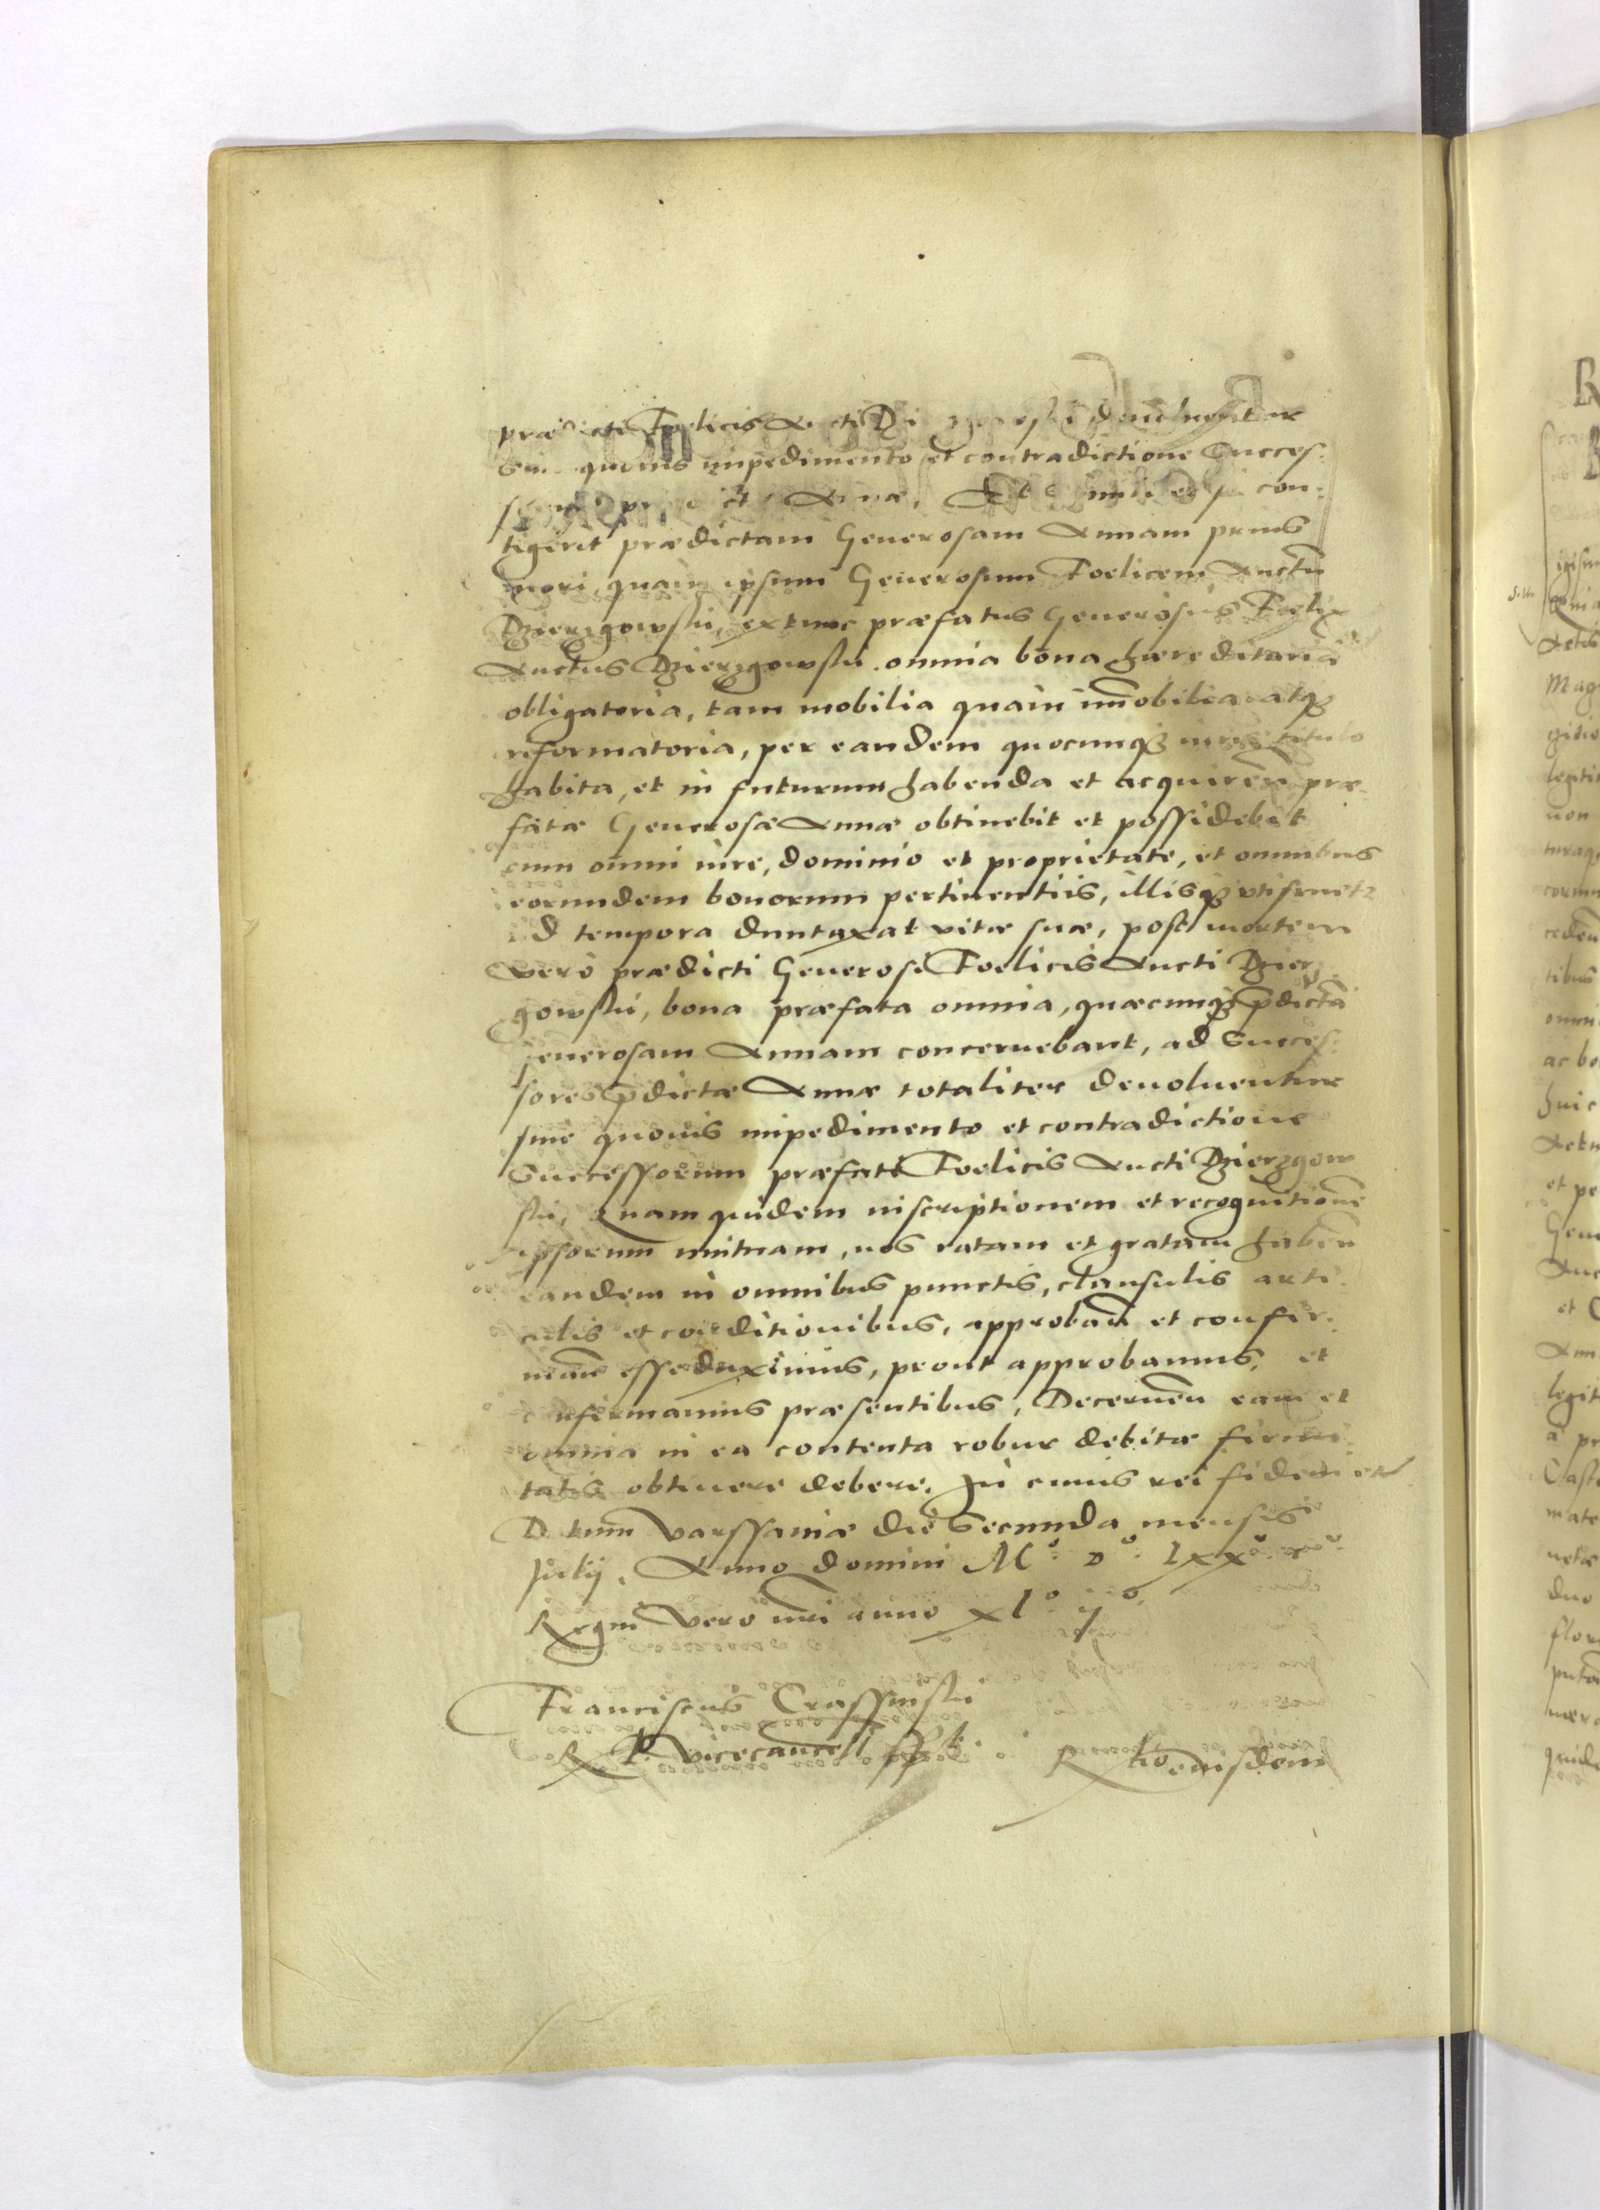 prædicti Foelicis Aucti Dzierzgowski deuoluentur
Sine quouis impedimento et contradictione Succes:
sorum prædictæ Annæ. Et si con:
tigerit prædictam Generosam Annam prius
mori, quam ipsum Generosum Foelicem Auctū
Dzierzgowski, extunc præfatus Generosus Foelix
Auctus Dzierzgowski omnia bona hæreditaria
obligatoria, tam mobilia quàm im̄obilia atq3
reformatoria, per eandem quocunq3 iuris titulo
habita, et in futurum habenda et acquirēn præ:
fatæ Generosæ Annæ obtinebit et possidebit
cum omni iure, dominio et proprietate, et omnibus
eorundem bonorum pertinentiis, illisq3 vtifruet2
ad tempora duntaxat vitæ suæ, post mortem
verò prædicti Generosi Foelicis Aucti Dzier
gowski, bona præfata omnia, quæcunq3 p̄dictā
generosam Annam concernebant, ad Succes:
sores p̄dictæ Annæ totaliter deuoluentur
sine quouis impedimento et contradictione
Successorum præfati Foelicis Aucti Dzierzgow
ski, Quam quidem inscriptionem et recognitionē
ipsorum mutuam, nos ratam et gratam habēn
eandem in omnibus punctis, clausulis arti:
culis et conditionibus, approbān et confir:
mān esse duximus, prout approbamus, et
confirmamus præsentibus, Decernēn eam et
omnia in ea contenta robur debitæ firmi:
tatis obtinere debere. In cuius rei fidem etc
Datum Varssaviæ die Secunda mensis
Julij, Anno Domini Mº Dº lxxº
Regni vero nr̄i anno xlº ijº
Franciscus Crassinski
R. P. vicecancell sst
Rtio eiusdem